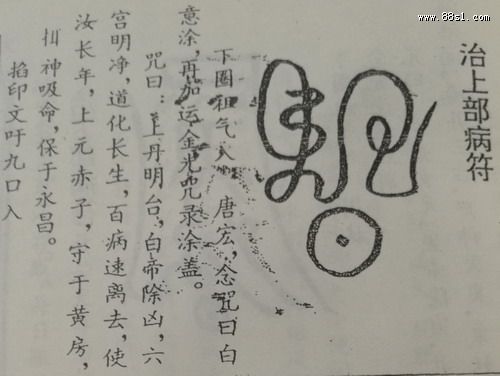 www.88sl.com
治上部病符
下圈祖气入　唐宏，念咒曰白
意涂，再加运金光咒录涂盖。
咒曰：上丹明台，白帝除凶，六
宫明净，道化长生，百病速离去，使
汝长年，上元赤子，守于黄房，
神吸命，保于永昌。
掐印文吁九口入